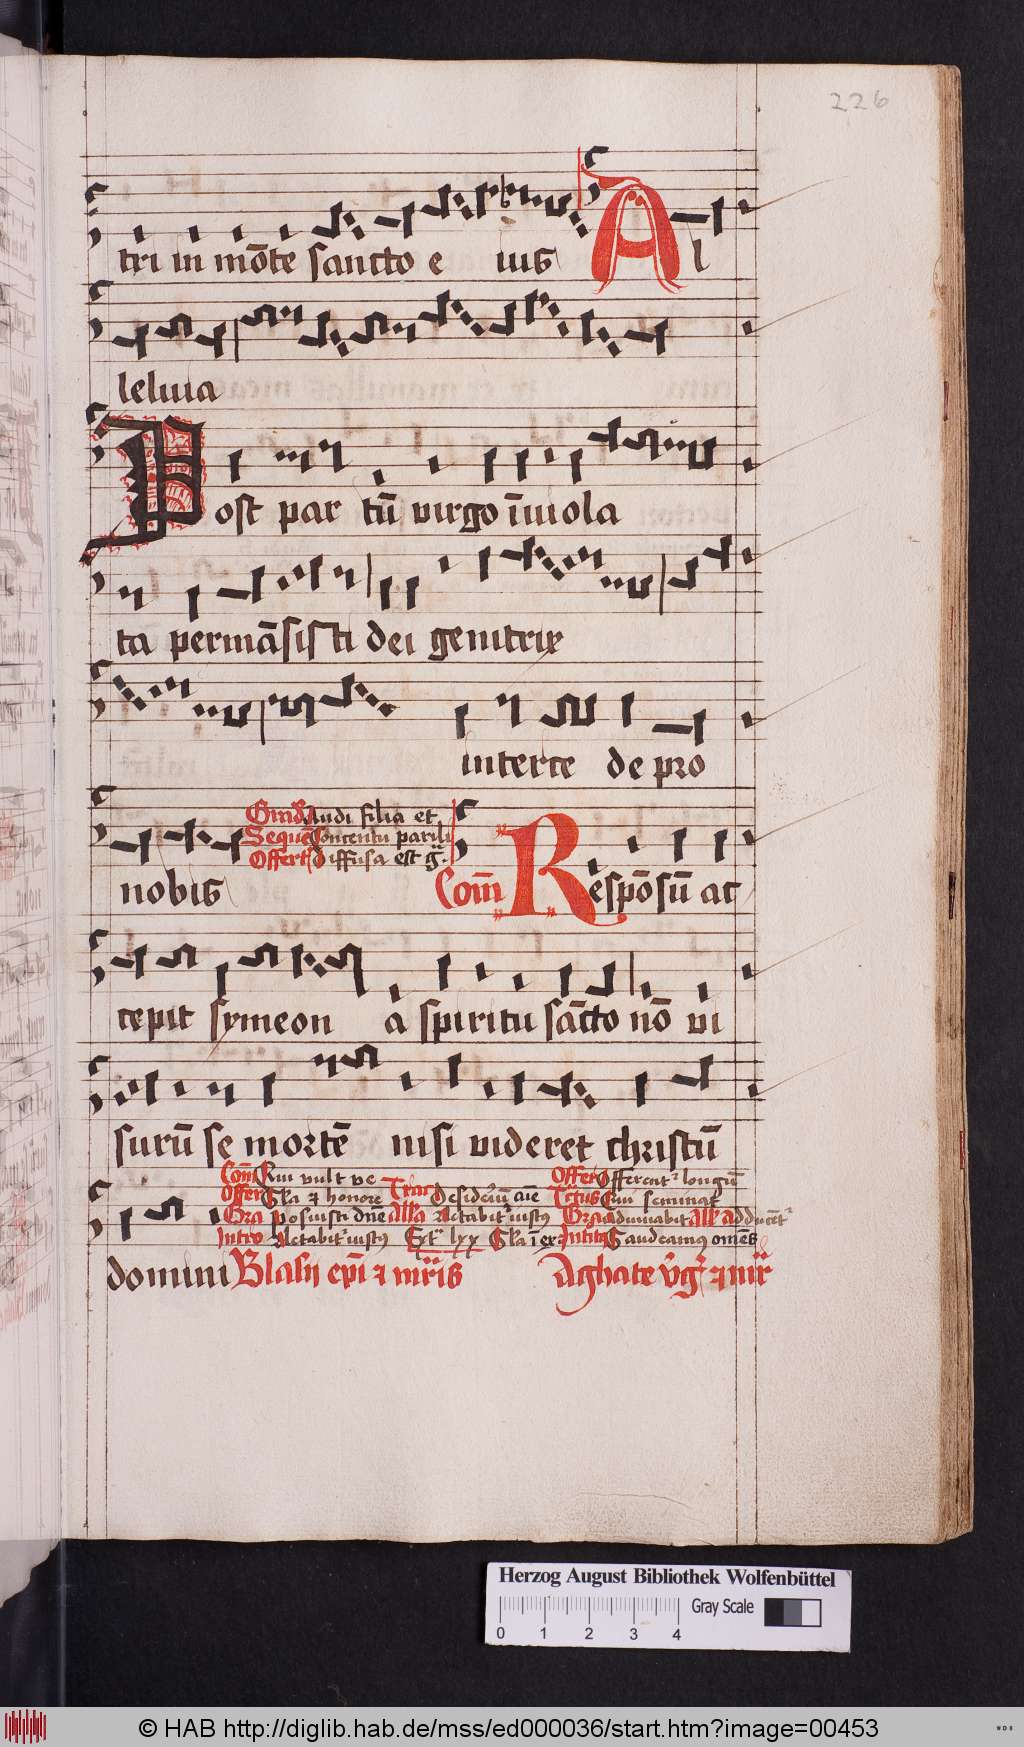 226
tri in mōte sancto e ius Al
leluia
Post par tū virgo īuiola
ta permāsisti dei genitrix
interce de pro
Grad Audi filia et
Sequē Concentu parili
Offert Diffusa est g̃
nobis Com̄ Respōsū ac
cepit symeon a spiritu sācto nō vi
surū se mortē nisi videret christū
Com̄ Qui vult ve Offer Offerent᷑ longiū
Offer Gla et honore Trac Desideriū aīe Tctus Qui seminat
Gra Posuisti dn̄e All'a Letabit᷑ iustꝰ Gra Adiuuabit All'a Adducēt᷑
Intro Letabit᷑ iustꝰ Ext᷑ lxx Gl'a ī ex Intitꝰ Gaudeamꝰ omēs
domini Blasij ep̄i et mr̄is Aghate v̄g̃ et mr̄
Herzog August Bibliothek Wolfenbüttel
Gray Scale
0 1 2 3 4
© HAB http://diglib.hab.de/mss/ed000036/start.htm?image=00453